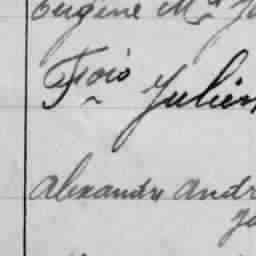 Eugène Md
Fois Julien
Alexandre André